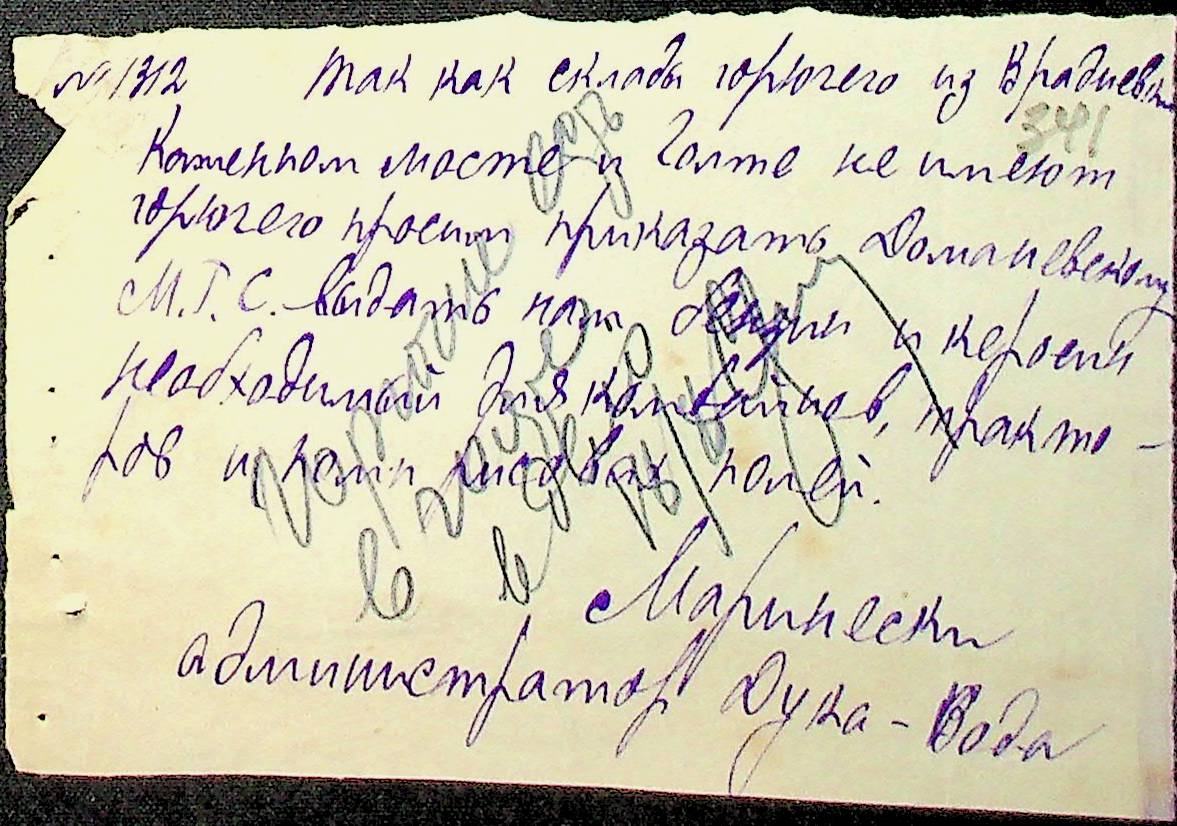 № 1312 Так как склады горючего из Врадиевки
341
Каменном мосте и Голте не имеют
горючего просим приказать Доманевскому
М.Т.С. выдать нам бензин и керосин
необходимый для комбайнов, тракто-
ров и рисовых полей.
Маринески
администратор Дука-Вода
в
в дело